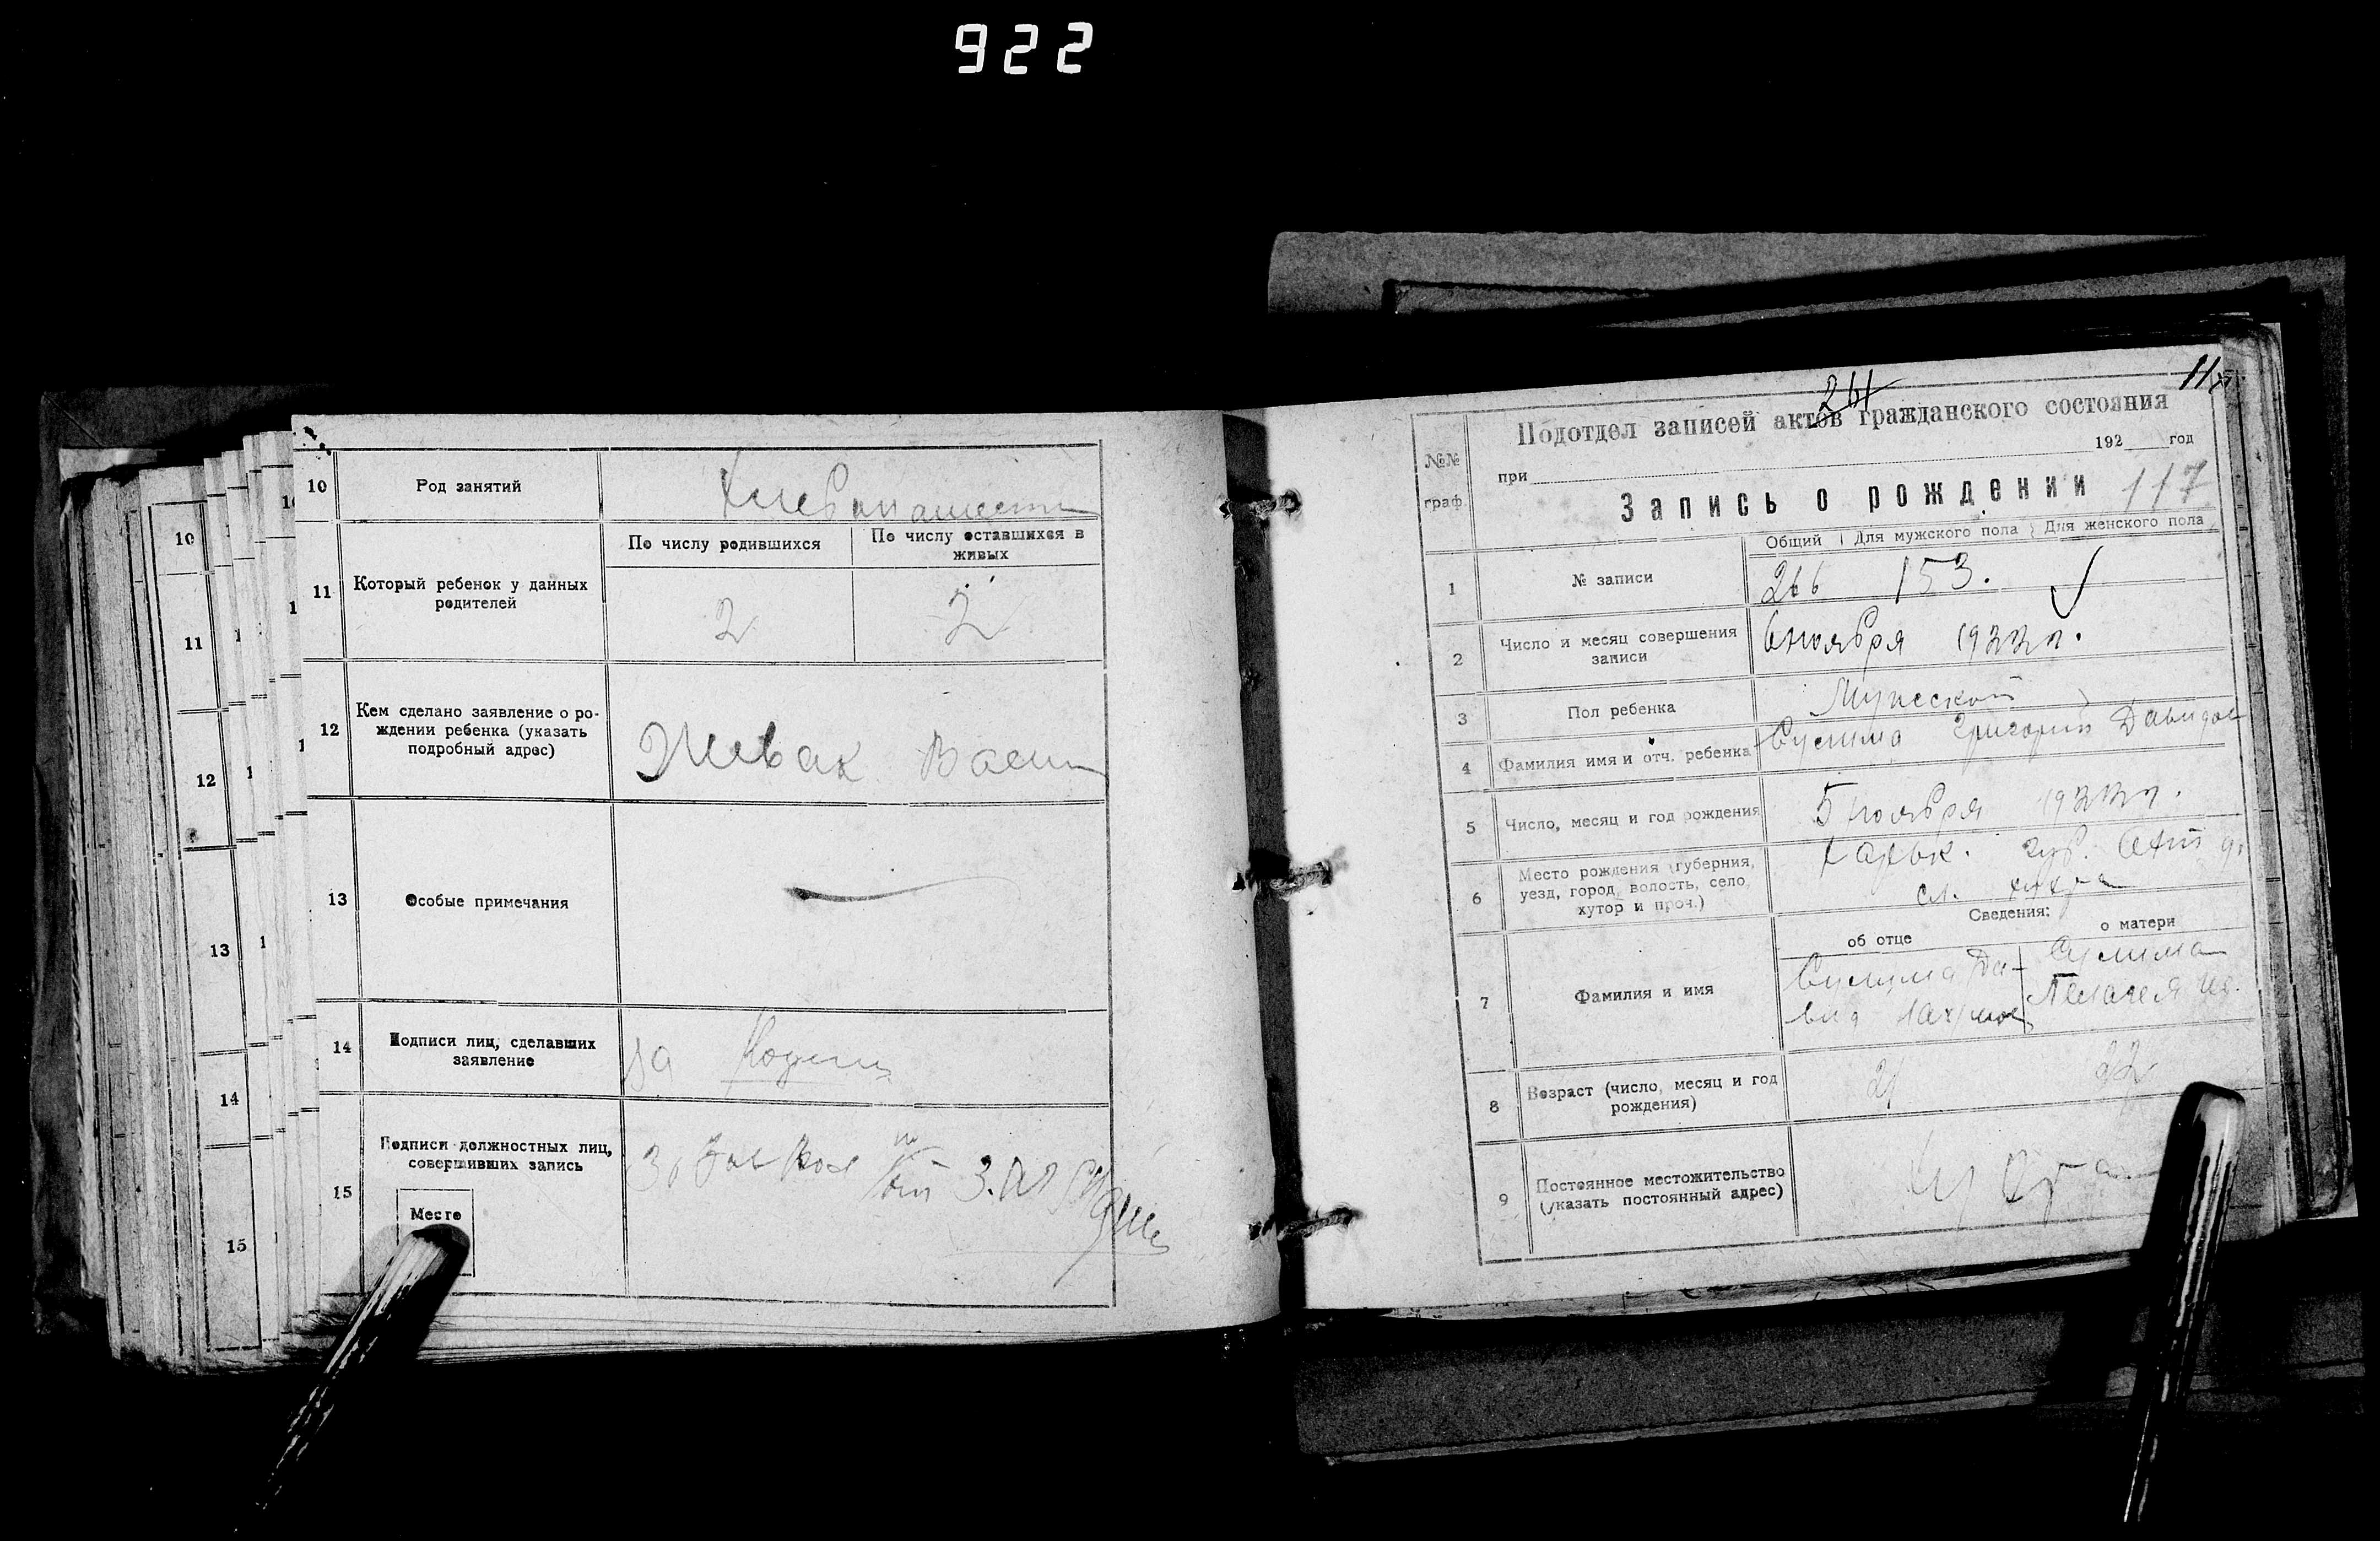 922
10
Род занятий
Хлебопашест
11
Который ребенок у данных
родителей
По числу родившихся
По числу оставшихся в
живых
2
2
12
Кем сделано заявление о ро-
ждении ребенка (указать
подробный адрес)
Васи
13
Особые примечания
14
Подписи лиц, сделавших
заявление
за
15
Подписи должностных лиц,
совершивших запись
Место
10
11
12
13
14
15
264
11
№№
граф.
Подотдел записей актов гражданского состояния
при 192 год
Запись о рождении 117
Общий Для мужского пола Для женского пола
1
№ записи
266 153.
2
Число и месяц совершения
записи
6 ноября 1922 г.
3
Пол ребенка
Мужской
4
Фамилия имя и отч. ребенка
Сулима Григорий Давидов
5
Число, месяц и год рождения
5 ноября 1922 г.
6
Место рождения (губерния,
уезд, город, волость, село,
хутор и проч.)
Харьк. губ.
сл.
Сведения:
об отце
о матери
7
Фамилия и имя
Сулима Да-
вид
Сулима
Пелагея
8
Возраст (число, месяц и год
рождения)
21
22
9
Постоянное местожительство
(указать постоянный адрес)